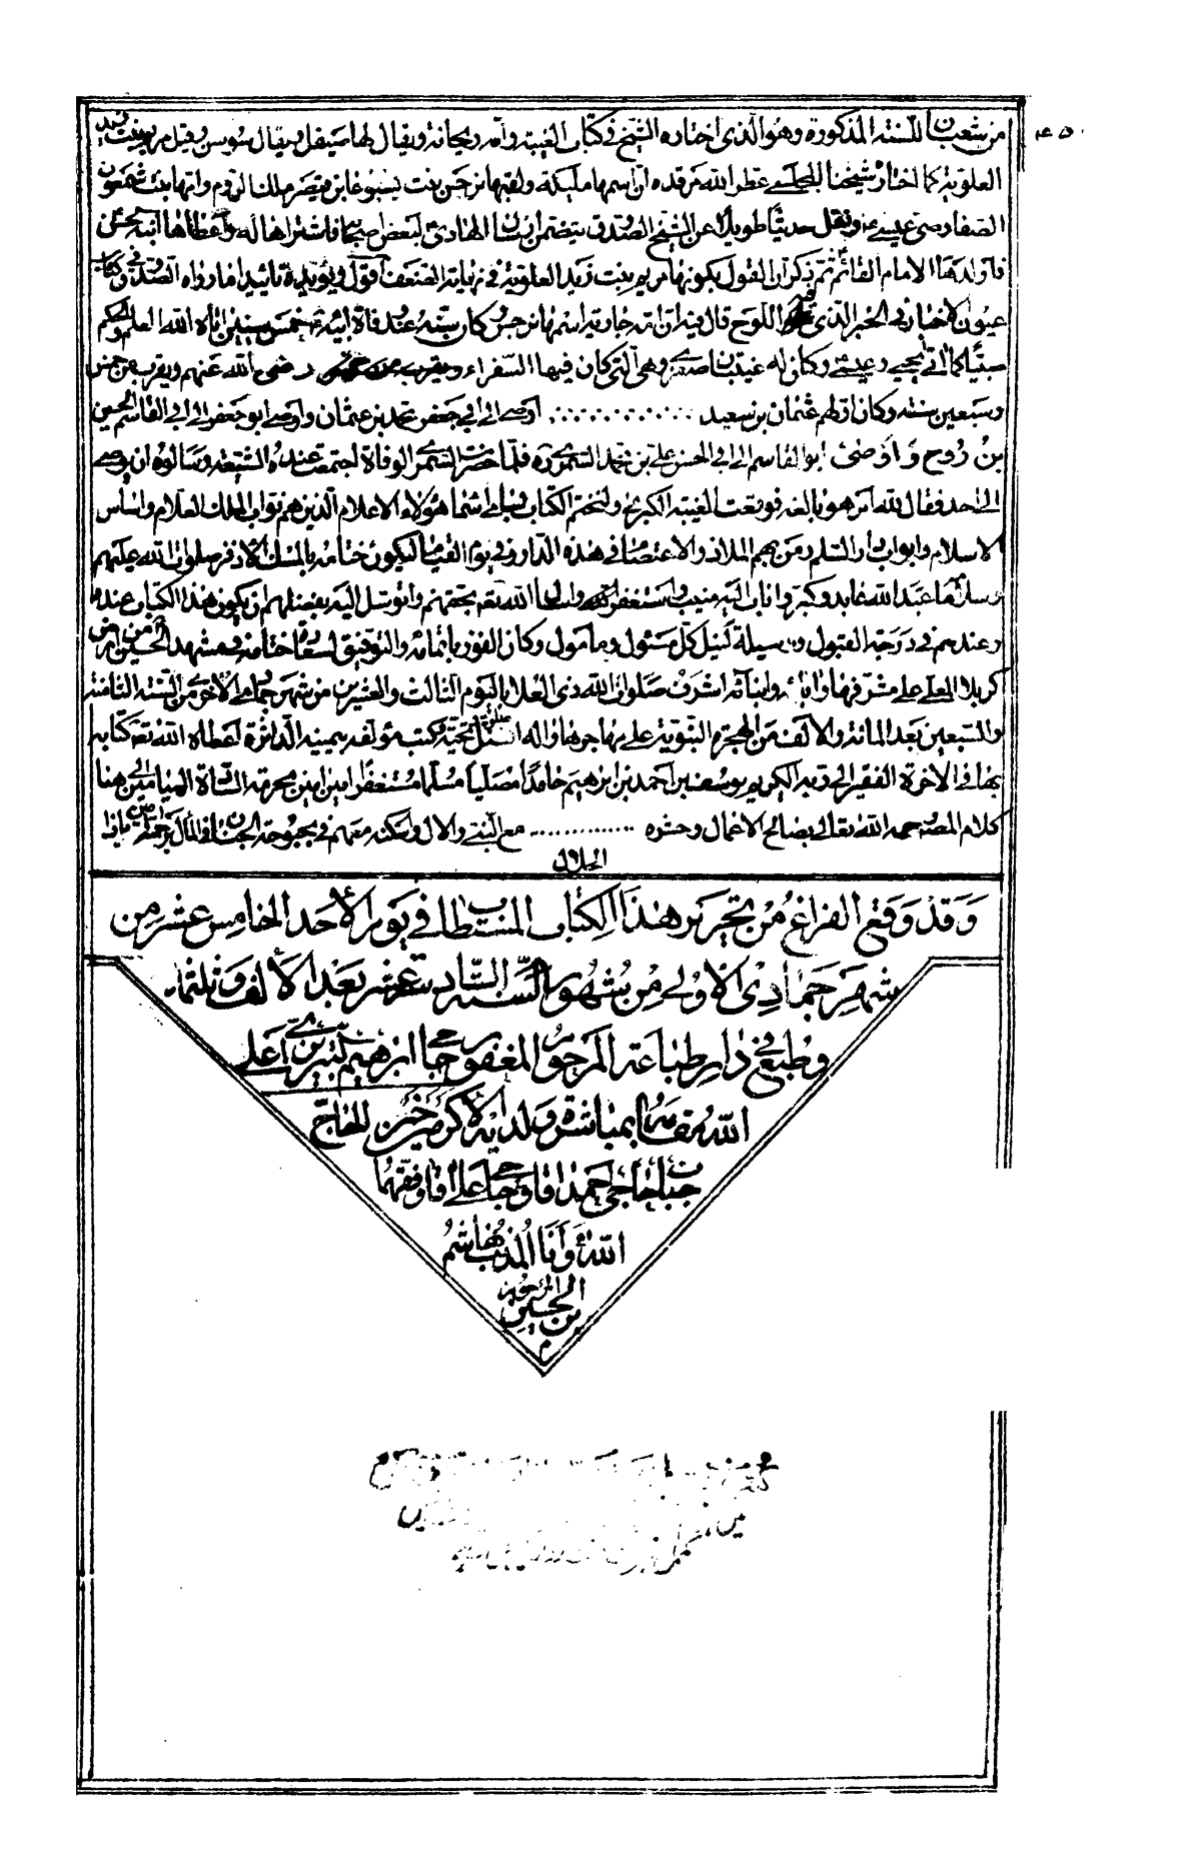 من شعبان للسنة المذكورة وهو الذي اختاره الشيخ في كتاب الغيبة وامه ريحانة ويقال لها صيقل ويقال سوسن وقيل مريم بنت زيد
العلوية كما اختاره شيخنا المجلسي عطر الله مرقده ان اسمها مليكة ولقبها نرجس بنت يشوعا بن قيصر ملك الروم وامها بنت شمعون
الصفا وصي عيسى ونقل حديثا طويلا عن الشيخ الصدوق يتضمن ارسال الهادي لبعض اصحابه فاشتراها له واعطاها ابنه الحسن
فاولدها الامام القائم ثم ذكر ان القول بكونها مريم بنت زيد العلوية في نهاية الضعف اقول ويؤيده تاييدا ما رواه الصدوق في كتاب
عيون الاخبار في الخبر الذي اللوح قال فيه ان امه جارية اسمها نرجس وكان سنه عند وفاة ابيه خمس سنين اتاه الله العلم والحكم
صبيا كما اتى يحيى وعيسى وكان له غيبتان صغرى وهي التي كان فيها السفراء رضي الله عنهم ويقرب من خمس
وسبعين سنة وكان اولهم عثمان بن سعيد ............ اوصى الى ابي جعفر محمد بن عثمان واوصى ابو جعفر الى ابي القاسم الحسين
بن روح واوصى ابو القاسم الى ابي الحسن علي بن محمد السمري فلما حضرت السمري الوفاة اجتمعت عنده الشيعة وسالوه ان يوصي
الى احد فقال لله امر هو بالغه فوقعت الغيبة الكبرى ولنختم الكتاب باسماء هؤلاء الاعلام الذين هم نواب الملك العلام واساس
الاسلام وابواب دار السلام ومن بهم الملاذ والاعتصام في هذه الدار وفي يوم القيام ليكون ختامه بالمسك الاذفر صلوات الله عليهم
وسلامه ما عبد الله عابد وكبر واناب اليه منيب واستغفر واسال الله تعالى بحقهم واتوسل اليه بفضلهم ان يكون هذا الكتاب عنده
وعندهم في درجة القبول وسيلة لنيل كل مسئول ومامول وكان الفوز باتمامه والتوفيق لسعادة ختامه في مشهد الحسين من ارض
كربلا المعلى على مشرفها وابائه وابنائه اشرف صلوات الله ذي العلا باليوم الثالث والعشرين من شهر جمادى الاخرى من السنة الثامنة
والسبعين بعد المائة والالف من الهجرة النبوية على مهاجرها واله افضل التحية وكتب مؤلفه بيمينه الداثرة اعطاه الله تعالى كتابه
بها في الاخرة الفقير الى ربه الكريم يوسف بن احمد بن ابرهيم حامدا مصليا مسلما مستغفرا امين امين بحرمة السادة الميامين الى هنا
كلام المصنف رحمه الله تعالى بصالح الاعمال وحشره ............. مع النبي والال واسكنه معهم في بحبوحة الجنان
الجلال
وقد وقع الفراغ من تحرير هذا الكتاب المستطاب في يوم الاحد الخامس عشر من
شهر جمادى الاولى من شهور السنة السادسة عشر بعد الالف وثلثمائه
وطبع في دار طباعة المرحوم المغفور حاجي ابرهيم تبريزي اعلى
الله مقامه بمباشرة ولديه الاكرمين خير الحاج
جنابان حاجي احمد اقا وحاجي علي اقا وفقهما
الله وانا المذنب هاشم
بن الحسين